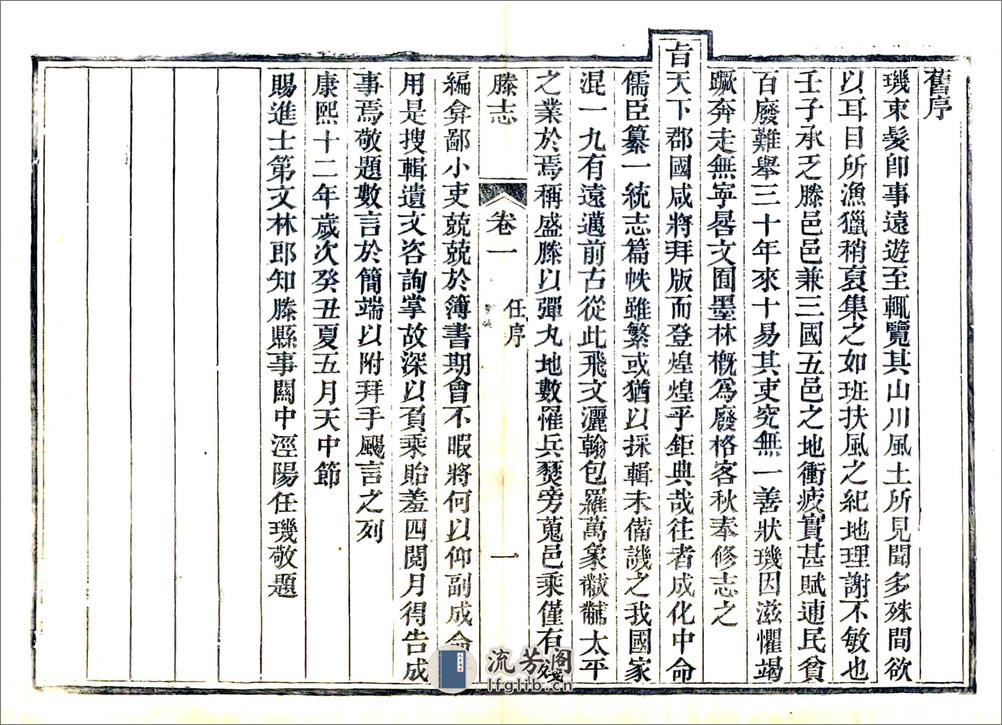 舊序
璣束髮卽事遠遊至輒覽其山川風土所見聞多殊間欲
以耳目所漁獵稍裒集之如班扶風之紀地理謝不敏也
壬子承乏滕邑邑兼三國五邑之地衝疲實甚賦逋民貧
百廢難舉三十年來十易其吏究無一善狀璣因滋懼竭
蹶奔走無寧晷文囿墨林槪爲廢格客秋奉修志之
旨天下郡國咸將拜版而登煌煌乎鉅典哉往者成化中命
儒臣纂一統志篇帙雖繁或猶以採輯未備譏之我國家
混一九有遠邁前古從此飛文灑翰包羅萬象黼黻太平
之業於焉稱盛滕以彈丸地數罹兵燹旁蒐邑乘僅有
滕志
卷一
任序
一
編弇鄙小吏兢兢於簿書期會不暇將何以仰副成命
用是搜輯遺文咨詢掌故深以負乘貽羞四閱月得告成
事焉敬題數言於簡端以附拜手颺言之列
康熙十二年歲次癸丑夏五月天中節
賜進士第文林郎知滕縣事關中涇陽任璣敬題
流芳阁
lfglib.cn